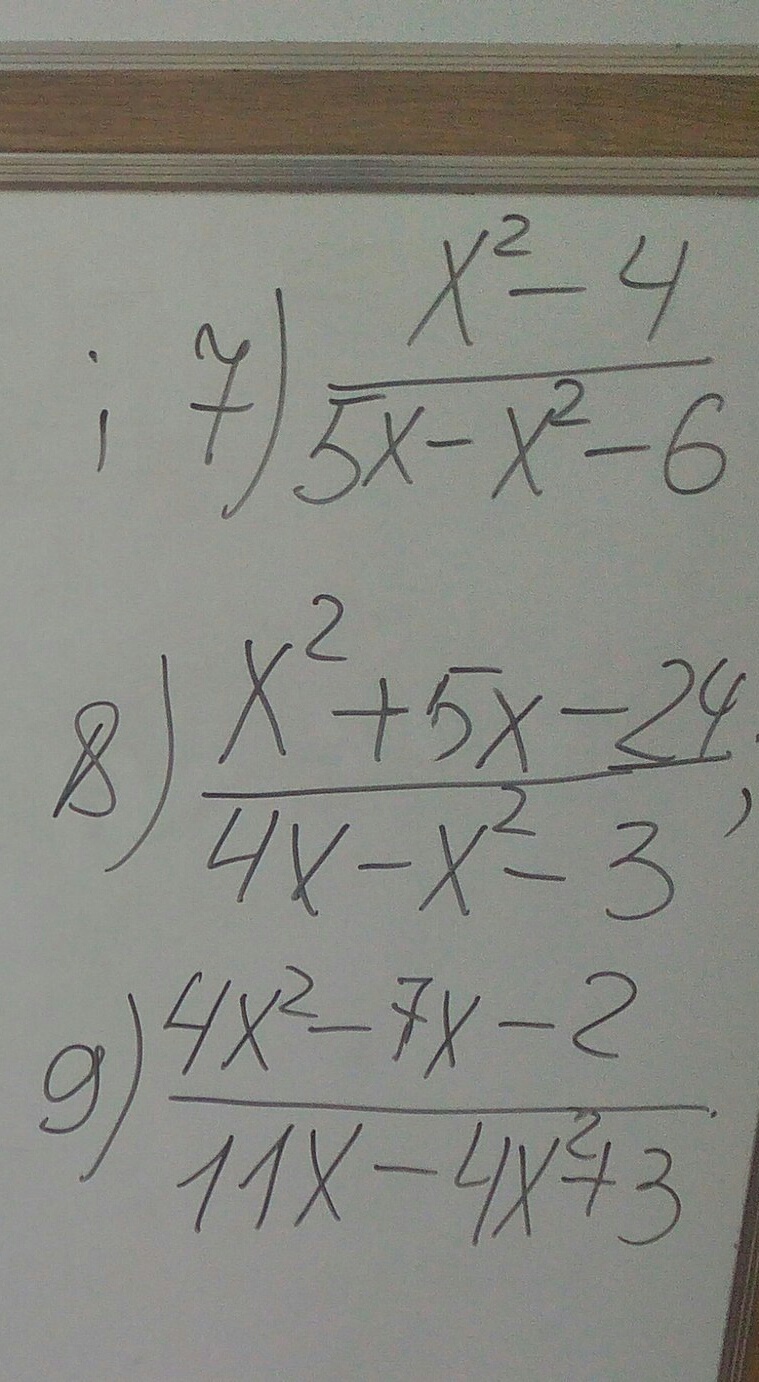 ; 7) x² - 4
5x - x² - 6
8) x² + 5x - 24 ;
4x - x² - 3
9) 4x² - 7x - 2 .
11x - 4x² + 3